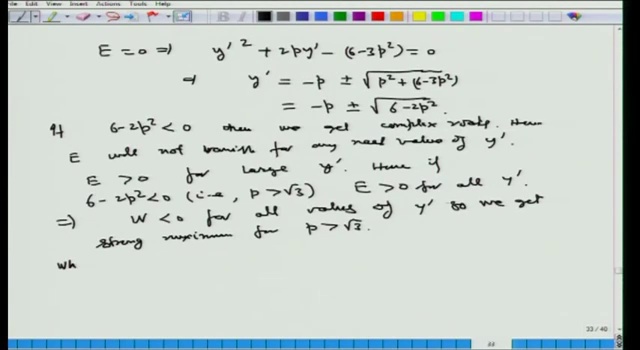 Edit View Insert Actions Tools Help
E = 0 ⇒ y'² + 2py' − (6−3p²) = 0
⇒ y' = −p ± √(p² + (6−3p²))
= −p ± √(6−2p²).
If 6−2p² < 0 then we get complex roots. Hence
E will not vanish for any real value of y'.
E > 0 for large y'. Hence if
6−2p² < 0 (i.e., p > √3) E > 0 for all y'.
⇒ W < 0 for all values of y' so we get
strong maximum for p > √3.
Wh
33 / 40
33